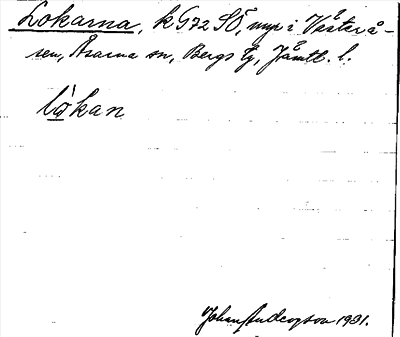 Lokarna, k G72 SÖ, myr i Västerå-
sen, Åsarna sn, Bergs tg, Jämtl. l.
lo̊̀kan
Johan Anderson 1931.